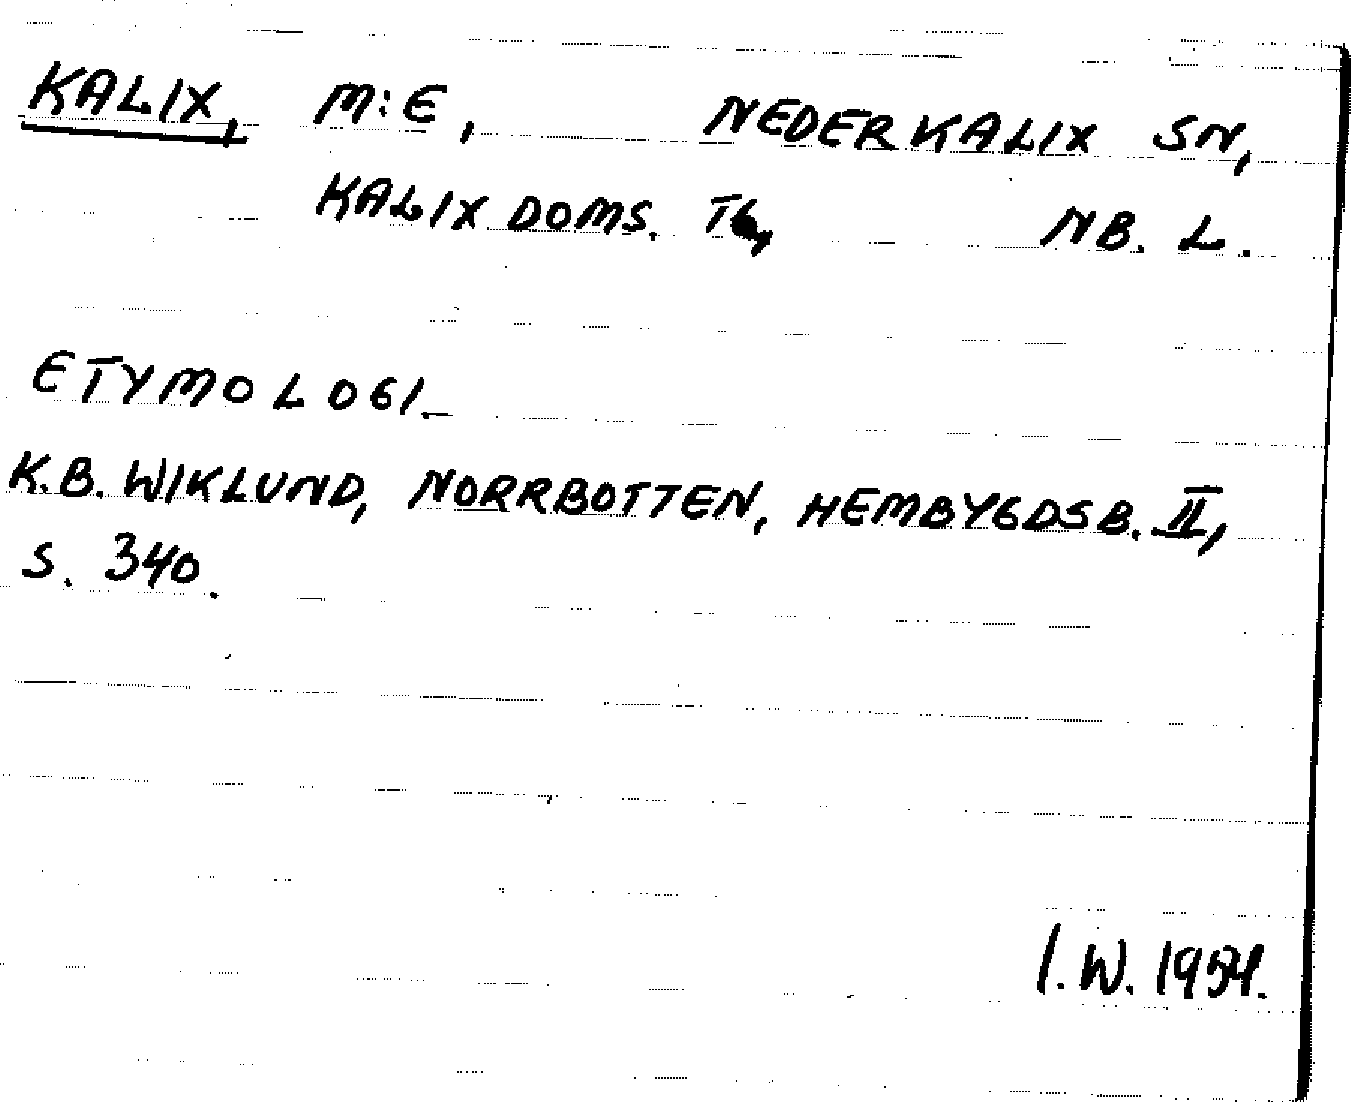 KALIX, M:E, NEDERKALIX SN,
KALIX DOMS. TG, NB. L.
ETYMOLOGI.
K.B. WIKLUND, NORRBOTTEN, HEMBYGDSB. II,
S. 340.
I.W. 1954.